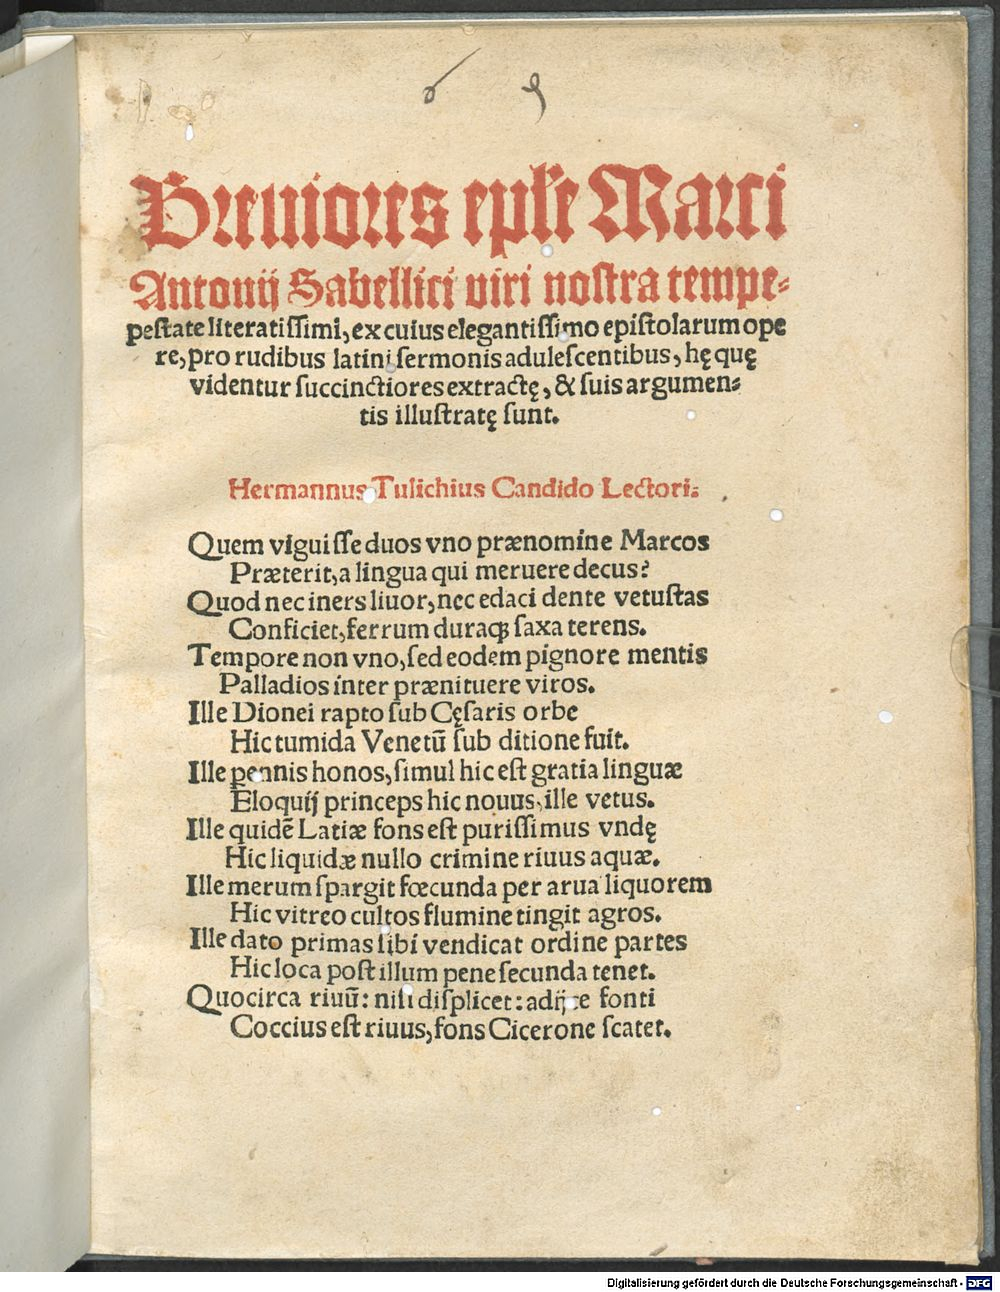 Breuiores eple Marci
Antonij Sabellici viri nostra tempe-
pestate literatissimi, ex cuius elegantissimo epistolarum ope
re, pro rudibus latini sermonis adulescentibus, hę quę
videntur succinctiores extractę, & suis argumen-
tis illustratę sunt.
Hermannus Tulichius Candido Lectori:
Quem viguisse duos vno prænomine Marcos
Præterit, a lingua qui meruere decus?
Quod nec iners liuor, nec edaci dente vetustas
Conficiet, ferrum duraqꝫ saxa terens.
Tempore non vno, sed eodem pignore mentis
Palladios inter prænituere viros.
Ille Dionei rapto sub Cęsaris orbe
Hic tumida Venetū sub ditione fuit.
Ille pennis honos, simul hic est gratia linguæ
Eloquij princeps hic nouus, ille vetus.
Ille quidē Latiæ fons est purissimus vndę
Hic liquidæ nullo crimine riuus aquæ.
Ille merum spargit fœcunda per arua liquorem
Hic vitreo cultos flumine tingit agros.
Ille dato primas sibi vendicat ordine partes
Hic loca post illum pene secunda tenet.
Quocirca riuū: nisi displicet: adijce fonti
Coccius est riuus, fons Cicerone scatet.
Digitalisierung gefördert durch die Deutsche Forschungsgemeinschaft - DFG